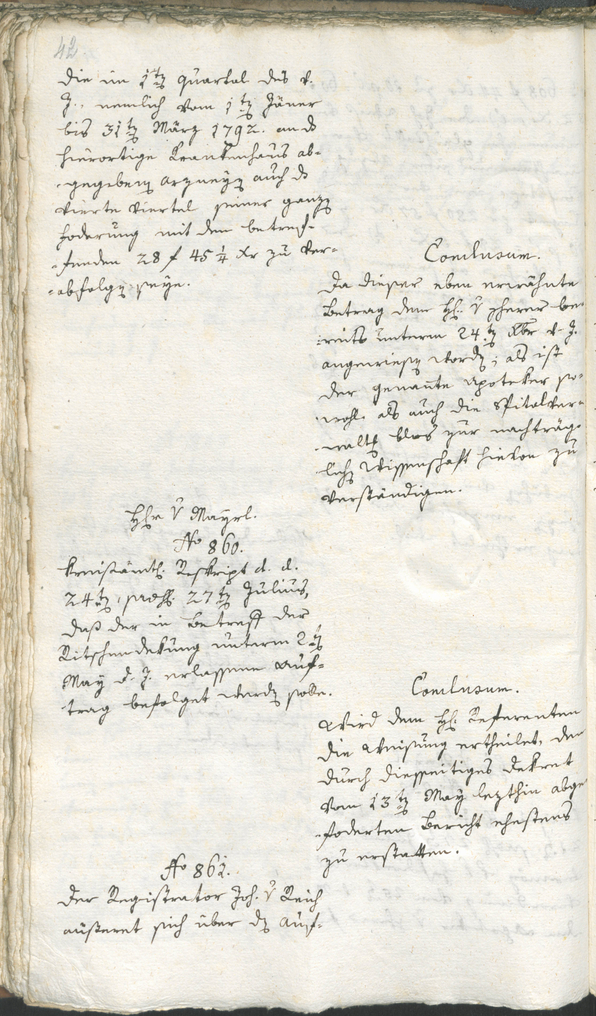 42
die im 1ten Quartal des v.
J., nemlich vom 1ten Jäner
bis 31ten März 1792. an ds
hierortige Krankenhaus ab-
gegebene Arzneyen auch ds
vierte Viertel seiner ganzen
Foderung mit dem betref-
fenden 28 f 45 1/4 xr zu ver-
abfolgen seye.
Conclusum.
Da dieser eben erwähnte
Betrag dem Hh. v be-
reits unterm 24ten Xbr v. J.
angewiesen worden; als ist
der genañte Apoteker so-
wohl als auch die Spitalver-
waltg blos zur nachträg-
lichen Wissenschaft hievon zu
verständigen.
Hhr v Mayrl.
No 860.
Kreisämtl. Reskript d. d.
24ten, 27ten Julius,
daß der in Betreff der
Ritschendekung unterm 2ten
May d. J. erlassene Auf-
trag befolget werden solle.
Conclusum.
Wird dem Hh. Referenten
die Weisung ertheilet, den
durch diesseitiges Dekret
vom 13ten May lezthin abge-
foderten Bericht ehestens
zu erstatten.
No 861.
Der Registrator Joh. v Reich
äußeret sich über den Auf-